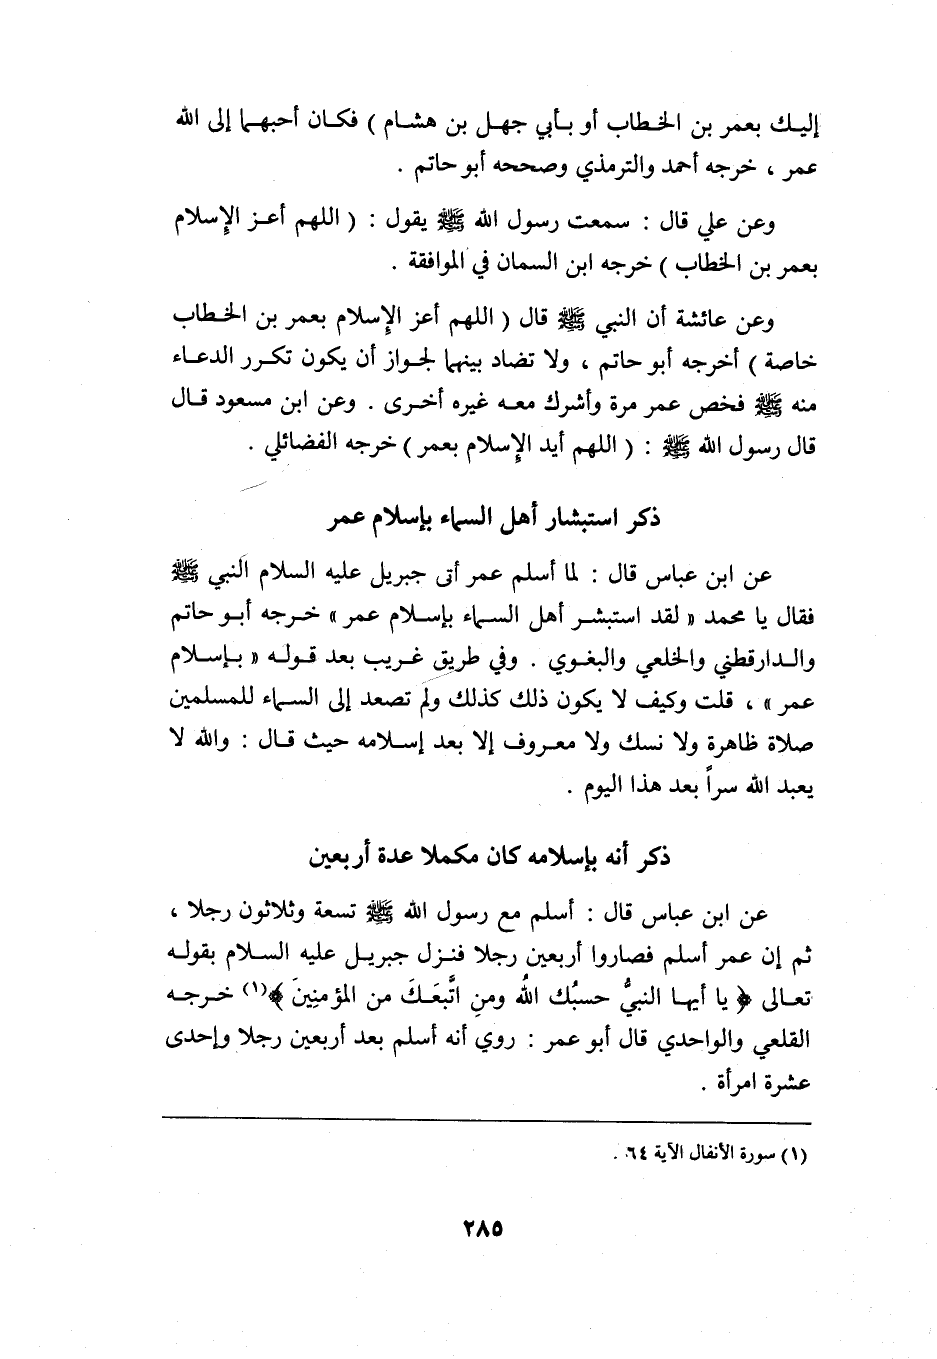 إليك بعمر بن الخطاب أو بأبي جهل بن هشام ) فكان أحبهما إلى الله
عمر ، خرجه أحمد والترمذي وصححه أبو حاتم .
وعن علي قال : سمعت رسول الله ﷺ يقول : ( اللهم أعز الإسلام
بعمر بن الخطاب ) خرجه ابن السمان في الموافقة .
وعن عائشة أن النبي ﷺ قال ( اللهم أعز الإسلام بعمر بن الخطاب
خاصة ) أخرجه أبو حاتم ، ولا تضاد بينهما لجواز أن يكون تكرر الدعاء
منه ﷺ فخص عمر مرة وأشرك معه غيره أخرى . وعن ابن مسعود قال
قال رسول الله ﷺ : ( اللهم أيد الإسلام بعمر ) خرجه الفضائلي .
ذكر استبشار أهل السماء بإسلام عمر
عن ابن عباس قال : لما أسلم عمر أتى جبريل عليه السلام النبي ﷺ
فقال يا محمد « لقد استبشر أهل السماء بإسلام عمر » خرجه أبو حاتم
والدارقطني والخلعي والبغوي . وفي طريق غريب بعد قوله « بإسلام
عمر » ، قلت وكيف لا يكون ذلك كذلك ولم تصعد إلى السماء للمسلمين
صلاة ظاهرة ولا نسك ولا معروف إلا بعد إسلامه حيث قال : والله لا
يعبد الله سراً بعد هذا اليوم .
ذكر أنه بإسلامه كان مكملا عدة أربعين
عن ابن عباس قال : أسلم مع رسول الله ﷺ تسعة وثلاثون رجلا ،
ثم إن عمر أسلم فصاروا أربعين رجلا فنزل جبريل عليه السلام بقوله
تعالى ﴿ يا أيها النبيُّ حسبُك اللهُ ومنِ اتَّبعَكَ من المؤمنِينَ ﴾(١) خرجه
القلعي والواحدي قال أبو عمر : روي أنه أسلم بعد أربعين رجلا وإحدى
عشرة امرأة .
(١) سورة الأنفال الآية ٦٤ .
٢٨٥